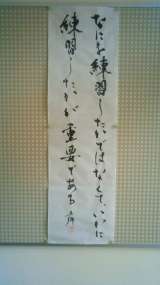 なにを練習したかではなくて、いかに
練習したかが重要である